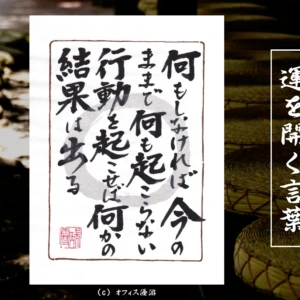 何もしなければ今の
ままで何も起こらない
行動を起こせば何かの
結果は出る
運を開く言葉
(c) オフィス優游